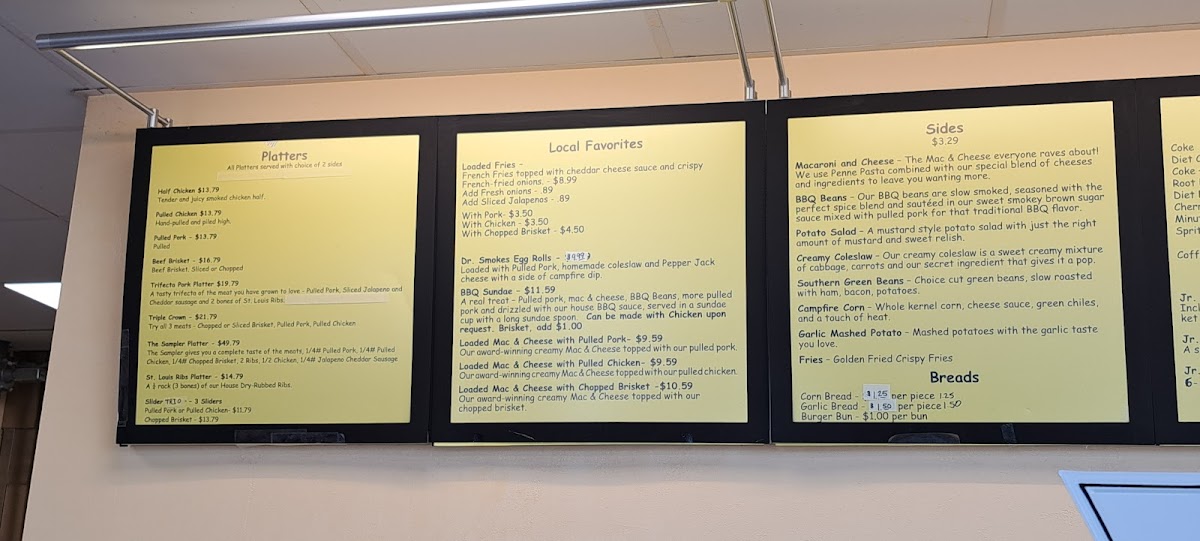 Platters
All Platters served with choice of 2 sides
Half Chicken $13.79
Tender and juicy smoked chicken half.
Pulled Chicken $13.79
Hand-pulled and piled high.
Pulled Pork - $13.79
Pulled
Beef Brisket - $16.79
Beef Brisket, Sliced or Chopped
Trifecta Pork Platter $19.79
A tasty trifecta of the meat you have grown to love - Pulled Pork, Sliced Jalapeno and
Cheddar sausage and 2 bones of St. Louis Ribs.
Triple Crown - $21.79
Try all 3 meats - Chopped or Sliced Brisket, Pulled Pork, Pulled Chicken
The Sampler Platter - $49.79
The Sampler gives you a complete taste of the meats, 1/4# Pulled Pork, 1/4# Pulled
Chicken, 1/4# Chopped Brisket, 2 Ribs, 1/2 Chicken, 1/4# Jalapeno Cheddar Sausage
St. Louis Ribs Platter - $14.79
A ½ rack (3 bones) of our House Dry-Rubbed Ribs.
Slider TRIO - - 3 Sliders
Pulled Pork or Pulled Chicken- $11.79
Chopped Brisket - $13.79
Local Favorites
Loaded Fries -
French Fries topped with cheddar cheese sauce and crispy
French-fried onions. - $8.99
Add Fresh onions - .89
Add Sliced Jalapenos - .89
With Pork- $3.50
With Chicken - $3.50
With Chopped Brisket - $4.50
Dr. Smokes Egg Rolls -
Loaded with Pulled Pork, homemade coleslaw and Pepper Jack
cheese with a side of campfire dip.
BBQ Sundae - $11.59
A real treat - Pulled pork, mac & cheese, BBQ Beans, more pulled
pork and drizzled with our house BBQ sauce, served in a sundae
cup with a long sundae spoon. Can be made with Chicken upon
request. Brisket, add $1.00
Loaded Mac & Cheese with Pulled Pork- $9.59
Our award-winning creamy Mac & Cheese topped with our pulled pork.
Loaded Mac & Cheese with Pulled Chicken- $9.59
Our award-winning creamy Mac & Cheese topped with our pulled chicken.
Loaded Mac & Cheese with Chopped Brisket -$10.59
Our award-winning creamy Mac & Cheese topped with our
chopped brisket.
Sides
$3.29
Macaroni and Cheese - The Mac & Cheese everyone raves about!
We use Penne Pasta combined with our special blend of cheeses
and ingredients to leave you wanting more.
BBQ Beans - Our BBQ beans are slow smoked, seasoned with the
perfect spice blend and sautéed in our sweet smokey brown sugar
sauce mixed with pulled pork for that traditional BBQ flavor.
Potato Salad - A mustard style potato salad with just the right
amount of mustard and sweet relish.
Creamy Coleslaw - Our creamy coleslaw is a sweet creamy mixture
of cabbage, carrots and our secret ingredient that gives it a pop.
Southern Green Beans - Choice cut green beans, slow roasted
with ham, bacon, potatoes.
Campfire Corn - Whole kernel corn, cheese sauce, green chiles,
and a touch of heat.
Garlic Mashed Potato - Mashed potatoes with the garlic taste
you love.
Fries - Golden Fried Crispy Fries
Breads
Corn Bread - $1.25 per piece 1.25
Garlic Bread - $1.50 per piece 1.50
Burger Bun - $1.00 per bun
Coke
Diet C
Coke
Root
Diet
Cherr
Minu
Sprit
Coff
Jr.
Incl
ket
Jr.
A s
Jr.
6-